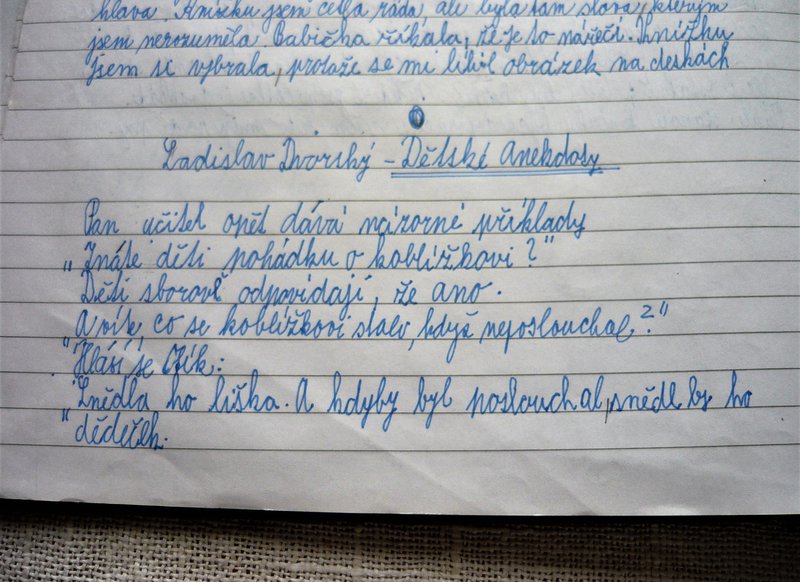 hlava. Knížku jsem četla ráda, ale byla tam slova, kterým
jsem nerozuměla. Babička říkala, že je to nářečí. Knížku
jsem si vybrala, protože se mi líbil obrázek na deskách
Ladislav Dvorský - Dětské Anekdoty
Pan učitel opět dává názorné příklady
„Znáte děti pohádku o koblížkovi?"
Děti sborově odpovídají, že ano.
A víte, co se koblížkovi stalo, když neposlouchal?"
"Hlásí se
Snědla ho liška. A kdyby byl poslouchal, snědl by ho
dědeček.